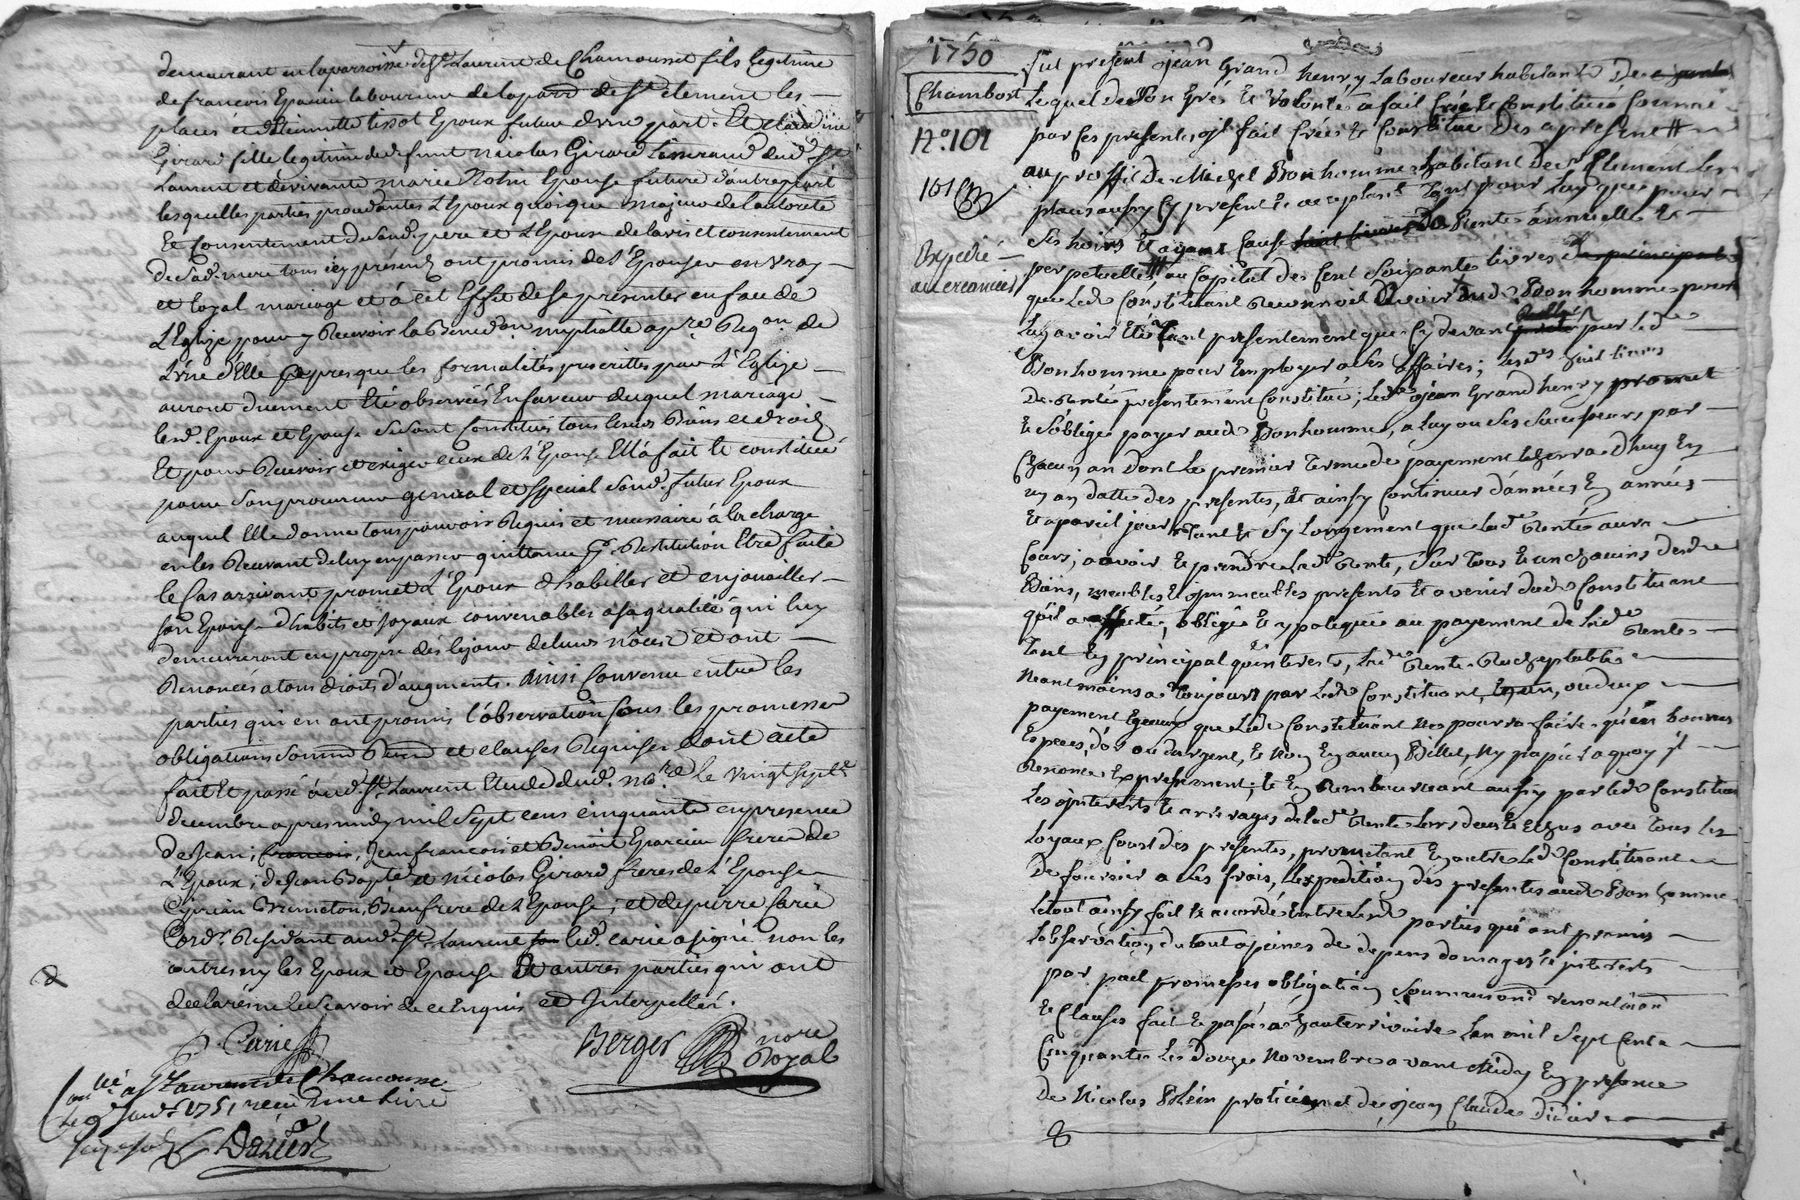 demeurant en la parroisse de St Laurent de Chamousset fils legitime
de francois Eparcieu laboureur de la par de St clement les
places et d'Etiennette tissot Epoux futur d'une part. Et claudine
Girard fille legitime de defunt nicolas Girard tisserand dud. St
Laurent et de vivante marie Epouse future d'autre part
lesquelles parties procedantes L'Epoux quoique majeur de l'autorité
Et Consentement de sond. pere et L'Epouse de l'avis et consentement
de sad. mere tous icy présens ont promis de s'Epouser en vray
et loyal mariage et à cet Effet de se présenter en face de
L'Eglize pour y Recevoir la Bened.on nuptialle a pre Reqon de
L'une d'Elle apres que les formalités prescrittes par L'Eglize
auront duement Eté observées En faveur duquel mariage
lesd. Epoux et Epouse se sont Constitués tous leurs Biens et droits
Et pour Recevoir et exiger ceux de l'Epouse Elle a fait et constitué
pour son procureur general et special sond. futur Epoux
auquel Elle donne tous pouvoir Requis et necessaire à la charge
en les Recevant de luy en passer quittance pr Restitution Etre faite
le Cas arrivant promet L'Epoux d'habiller et enjouailler
son Epouse d'habits et joyaux convenables a sa qualité qui luy
demeureront en propre dès le jour de leurs nôces et ont
Renoncés a tous droits d'augments. ainsi Convenu entre les
parties qui en ont promis l'observation sous les promesses
obligations soumn Renon et clauses Requises dont acte
fait Et passé aud. St Laurent Etude dud. no.re le vingt sept
decembre apres midy mil sept cens cinquante en presence
de Jean, francois, Jean francois et Benoit Eparcieu freres de
L'Epoux; de Jean Bapte et nicolas Girard freres de L'Epouse
Ciprian Beaufrere de L'Epouse; et de pierre Carie
Cordr. Résidant aud. St. Laurent led. carie a signé non les
autres ny les Epoux et Epouse Et autres parties qui ont
declaré ne le sçavoir de ce Enquis et Interpellés.
Carie
Berger nore Royal
Conllé a St Laurent de Chamousset
le 9 Janr. 1751, recu
1750
Chambost
No. 101
101
Expedié
au creancier
fut présent Jean Grand henry Laboureur habitant De
Lequel de son Grés Et Volonté a fait Créé et Constitué Comme
par Ces presentes il fait Créé et Constitue Des apresent
au proffit De Michel Bonhomme habitant de St Clement Les
places aussy Cy present et acceptant tant pour Luy que pour
Ses hoirs Et ayant Cause Rente annuelle Et
perpetuelle au Capital des Cent Soixante livres de principal
que Led. Constituant Reconnoit Devoir aud. Bonhomme pour
Luy avoir Eté tant presentement que Cy devant par led.
Bonhomme pour Employer a ses affaires; Lesd. huit livres
De Rente presentement Constitué, Led. Jean Grand henry promet
Et s'oblige payer aud. Bonhomme, a luy ou ses successeurs par
Chacun an Dont Le premier terme de payement Echerra d'huy En
un an datte des presentes, Et ainsy Continuer d'années En années
Et a pareil jour tant Et sy Longement que lad. Rente aura
Cours; a avoir Et prendre Lad. Rente, Sur tous Et un chacuns Desd.
Biens, meubles Et immeubles presents Et avenir dud. Constituant
qu'il a affecté, obligé Et ypotequé au payement de lad. Rente
Tant En principal qu'interets, Lad. Rente Racheptable
Neantmoins a toujours par Led. Constituant, En un, ou deux
payement Egaux que Led. Constituant Ne pourra faire qu'en bonnes
Especes, d'or ou d'argent, Et Non En aucun Billet, Ny papier a quoy il
Renonce Expressement; Et En Remboursant aussy par led. Constituant
Les interets Et arrérages de lad. Rente Lors deus Et Echus avec tous les
Loyaux Coust des presentes, promettant En outre Led. Constituant
De fournir a ses frais, L'expedition des presentes aud. Bonhomme
Le tout ainsy fait Et accordé Entre Lesd. parties qui ont promis
L'observation du tout a peines de depens domages Et interets
par pact promesses obligation soumissions renontiaon
Et Clauses fait Et passé a hauterivoire Lan mil Sept Cent
Cinquante Le Douze Novembre avant Midy En presence
De Nicolas Blein praticien et de Jean Claude Didier